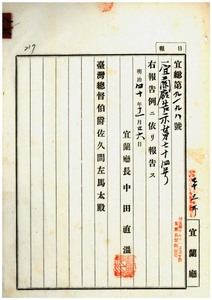 報 日
宜總第九一九八號
宜蘭廳告示第七十四號
右報告例ニ依リ報告ス
明治四十年十一月廿六日
宜蘭廳長 中田直溫
臺灣總督伯爵佐久間左馬太殿
宜蘭廳
217